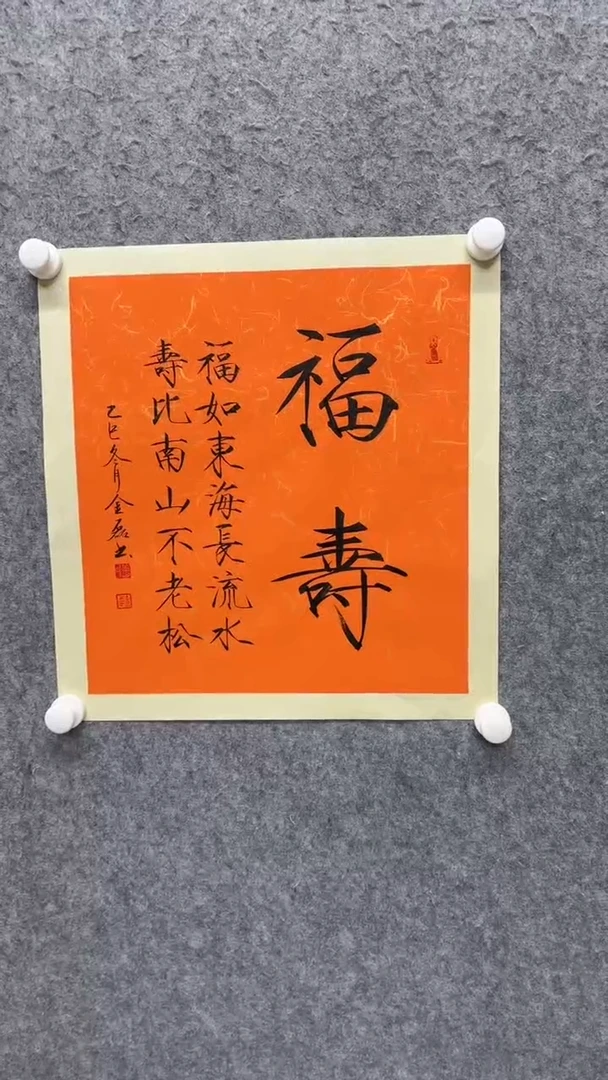 福壽
福如東海長流水
壽比南山不老松
乙巳冬月金磊书